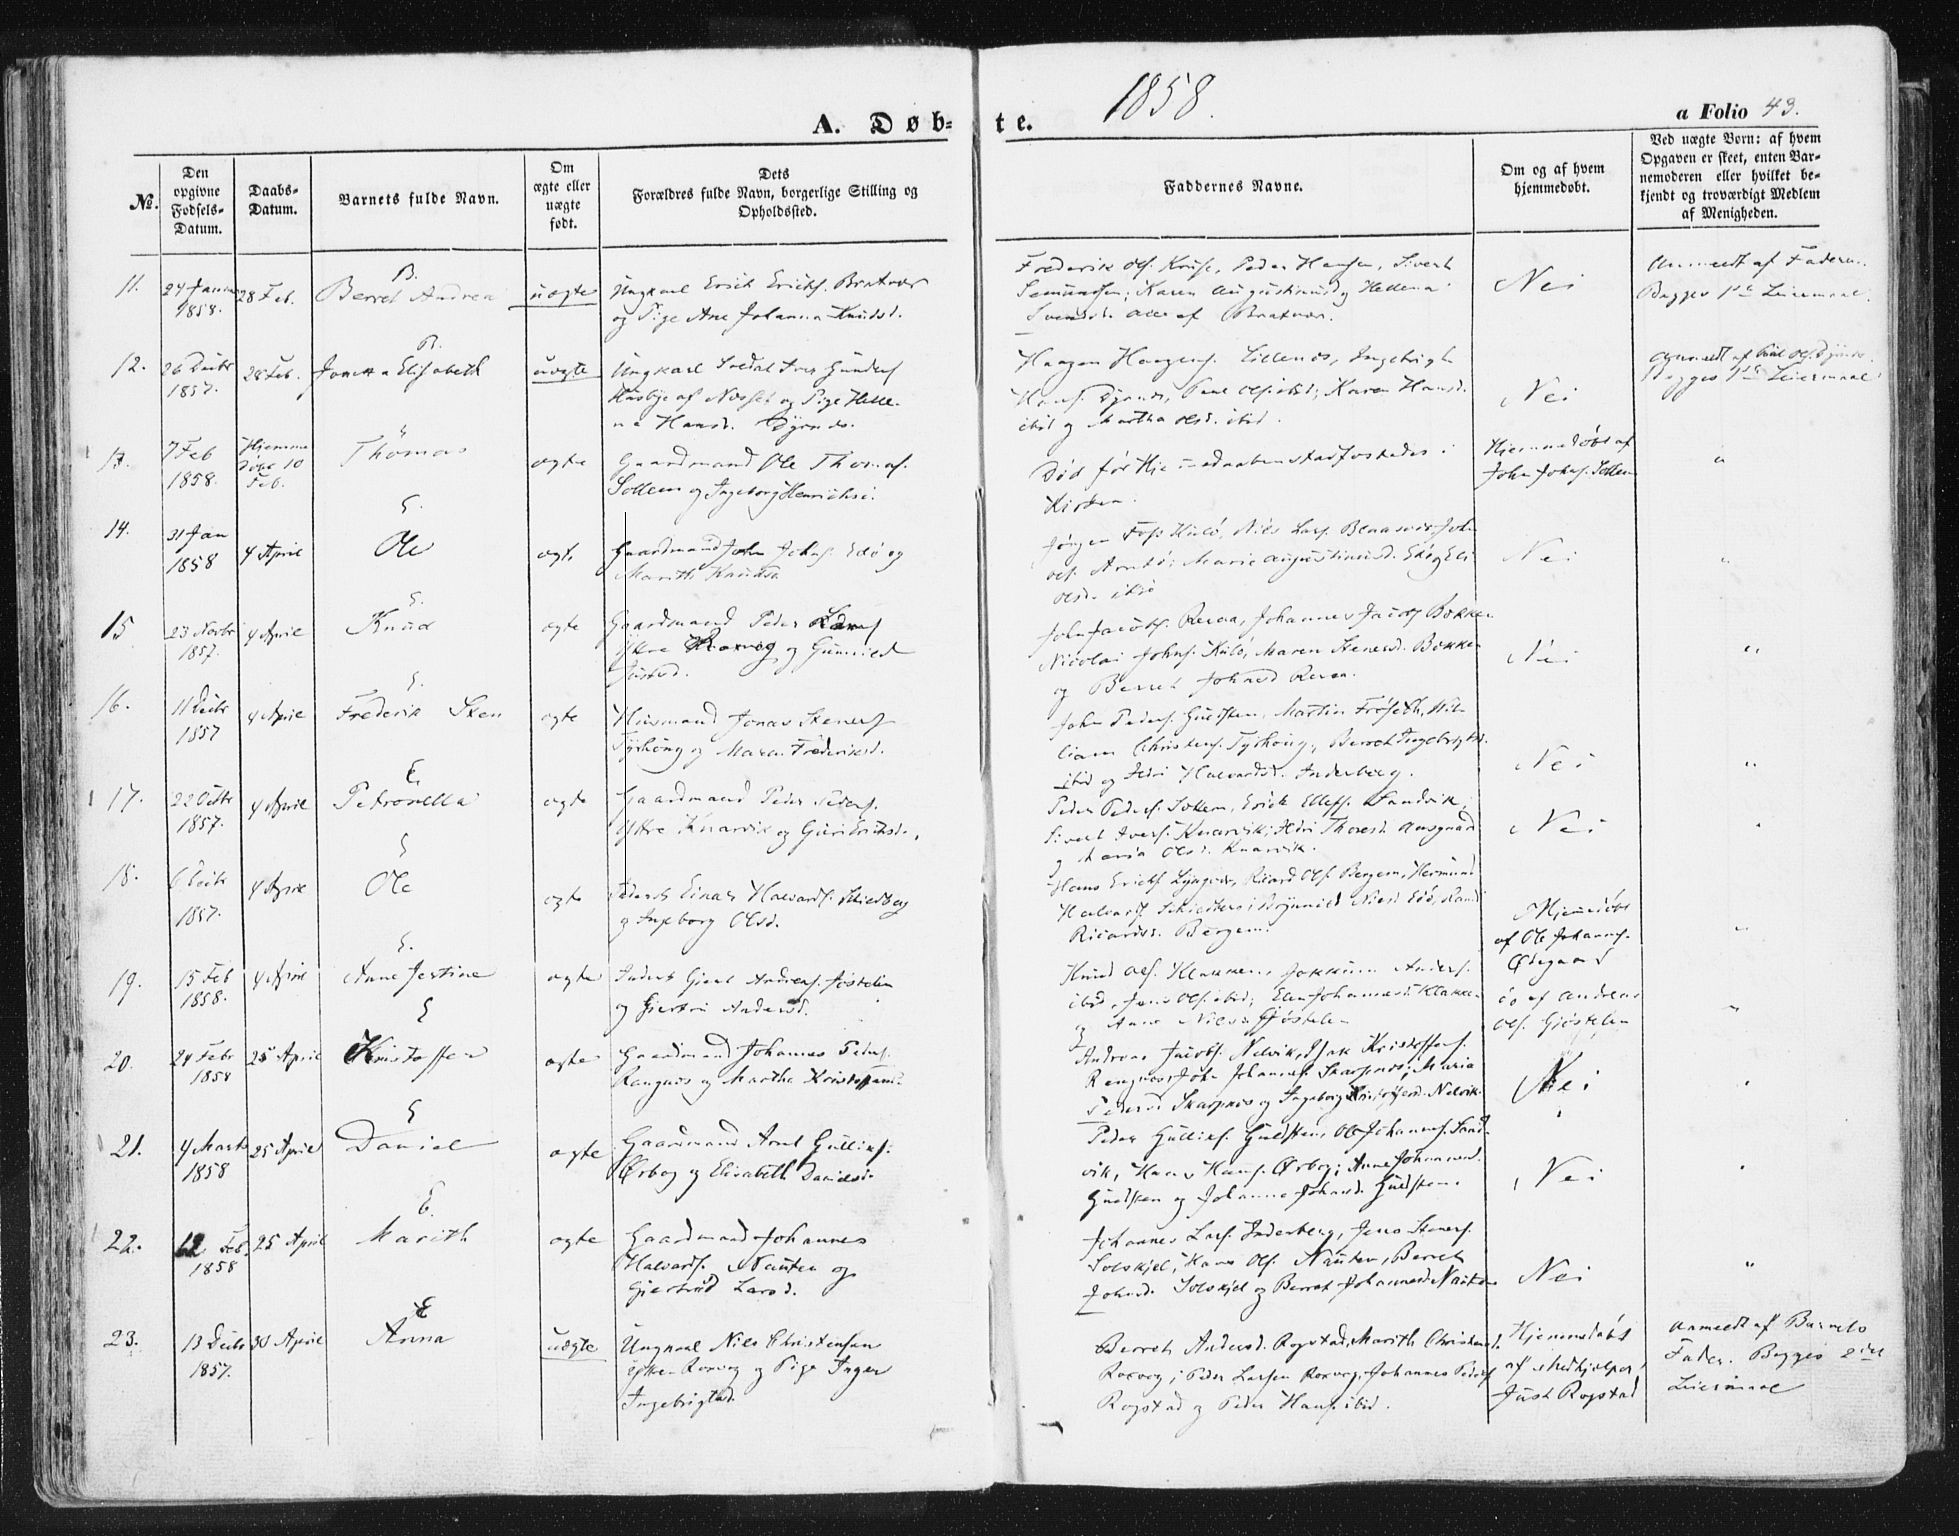 1858.
A. Døb- te.
a Folio 43.
No.
Den opgivne Fødsels-Datum.
Daabs-Datum.
Barnets fulde Navn.
Om ægte eller uægte født.
Dets Forældres fulde Navn, borgerlige Stilling og Opholdssted.
Faddernes Navne.
Om og af hvem hjemmedøbt.
Ved uægte Børn: af hvem Opgaven er skeet, enten Barnemoderen eller hvilket bekjendt og troværdigt Medlem af Menigheden.
B.
11. 24 Januar 1858. 28 Feb. Berret Andrea uægte
Ungkarl Erick Ericks. Bratvær
og Pige Ane Johanna Knudsd.
Frederik Ols. Kruse, Peder Hansen, Sivert
Svendsd. alle af Bratvær.
Nei
Anmeldt af Faderen.
Begges 1ste Leiermaal.
B.
12. 26 Decbr 1857. 28 Feb. Jonetta Elisabeth uægte
Ungkarl Soldat Iver Gunders
Husbye af Næsset og Pige Helle-
na Hansd.
ibid og Martha Olsd. ibid.
Nei
Begges 1ste Leiermaal
13. 7 Feb 1858. Hjemme døbt 10 Feb. Thomas ægte
Gaardmand Ole Thomas.
Sollem og Ingeborg Henriksd.
Død før Hjemmedaaben stadfæstedes i
Kirken.
Hjemmedøbt af
John Johns. Sollem
"
G.
14. 31 Jan 1858 4 April Ole ægte
Gaardmand John Johns. Edø og
Marith Knudsd
Olsd. ibid
Nei
"
G.
15 23 Novbr 1857. 4 April Knud ægte
Gaardmand Peder Lars.
Yttre Roxvog og Gunnild
Justsd.
John Jacobs. Reroa, Johannes Jacobs Bækken
Nicolai Johns. Kulø, Maren Stenersd. Bækken
og Berret Johnsd Reroa.
Nei
"
G.
16. 11 Decbr 1857 4 April Frederik Sten ægte
Husmand Jonas Steners.
Tyshaug og Maren Frederiksd.
John Peders. Guldsten, Martin Frøseth, Wil-
liam Christens. Tyshaug, Berret Ingebrigtsd.
ibid og Idri Halvardsd. Inderberg.
Nei
"
G
17. 22 Octbr 1857. 4 April Petronella ægte
Gaardmand Peder Peders.
Yttre Knarvik og Guri Eriksd.
Peder Peders. Sollem, Erick Ellefs. Sandvik,
Sivert Ivers. Knarvik; Idri Thoresd. Aasgaard
og Maria Olsd. Knarvik.
Nei
G
18. 6 Decbr 1857. 4 April Ole ægte
Inderst Einar Halvards. Skiedberg
og Ingeborg Olsd.
Hans Ericks. Lyngvær, Ricard Ols. Bergem, Hermund
Ricardsd. Bergem.
Hjemmedøbt
af Ole Johanns.
Ødegaard
"
G.
19. 15 Feb 1858. 4 April Anne Jestine ægte
Inderst Giert Anders. Jøstelen
og Giertru Andersd.
Knud Ols. Klakken, Jokkum Anders.
ibid, Jens Ols. ibid; Elen Johannesd. Klakken
og Anne Nilsd. Gjøstelen
do af Andreas
Ols. Gjøstelen
"
G
20. 24 Febr 1858 25 April Kristoffer ægte
Gaardmand Johannes Peders.
Rangnæs og Martha Kristoffersd.
Andreas Jacobs. Nelvik, Isak Kristoffers.
Rangnæs, John Johannes. Skarpnæs; Maria
Pedersd. Skarpnæs og Ingeborg Kristoffersd. Nelvik.
Nei
G
21. 4 Marts 1858 25 April Daniel ægte
Gaardmand Arnt Gulliks.
Ørbog og Elisabeth Danielsd.
Peder Gulliks. Guldsten, Ole Johannes. Sand-
vik, Hans Hans. Ørbog; Anne Johannesd.
Guldsten og Johanne Johansd. Guldsten.
Nei
G.
22. 12 Feb. 1858 25 April Marith ægte
Gaardmand Johannes
Halvards. Nauten og
Giertrud Larsd.
Johannes Lars. Inderberg, Jens Steners.
Solskjel, Hans Ols. Nauten, Berret
Johnsd. Solskjel og Berret Johannesd. Nauten
Nei
"
G
23. 13 Decbr 1857. 30 April Anna uægte
Ungkarl Nils Christensen
Yttre Roxvog og Pige Inger
Ingebrigtsd.
Berret Andersd. Rogstad, Marith Christensd.
Roxvog; Peder Larsen Roxvog, Johannes Peders.
Rogstad og Peder Hans. ibid.
Hjemmedøbt
af Medhjelper
Just Rogstad
Anmeldt af Barnets
Fader. Begges 2det
Leiermaal